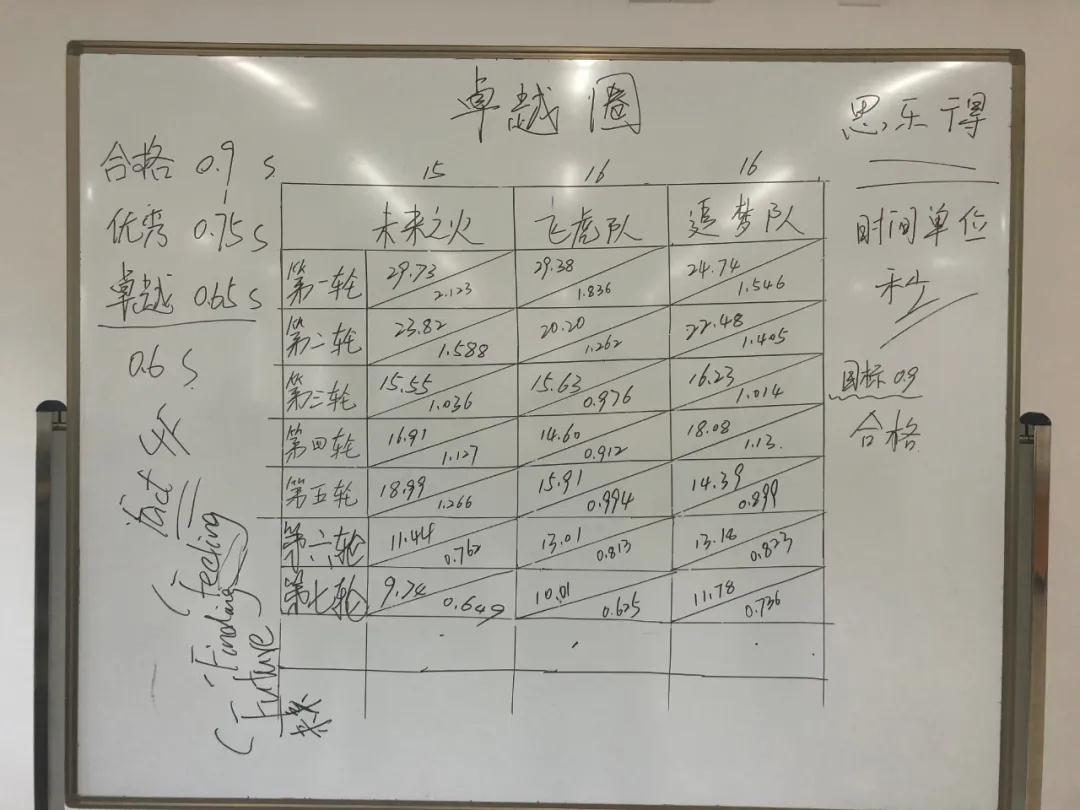 卓越圈
思乐得
合格 0.9 s
优秀 0.75 s
卓越 0.65 s
0.6 s
15 16 16
未来之火 飞虎队 追梦队
第一轮 29.73 2.123 29.38 1.836 24.74 1.546
第二轮 23.82 1.588 20.20 1.262 22.48 1.405
第三轮 15.55 1.036 15.63 0.976 16.23 1.014
第四轮 16.91 1.127 14.60 0.912 18.08 1.13
第五轮 18.99 1.266 15.91 0.994 14.39 0.899
第六轮 11.44 0.762 13.01 0.813 13.18 0.823
第七轮 9.74 0.649 10.01 0.625 11.78 0.736
时间单位
秒
目标 0.9
合格
4F
fact
Feeling
Finding
Future